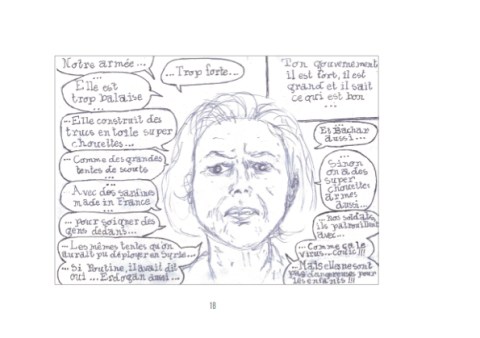 Notre armée ...
... Trop forte...
Ton gouvernement
il est fort, il est
grand et il sait
ce qui est bon
...
...
Elle est
trop balaise
...
...Elle construit des
trucs en toile super
chouettes...
... Comme des grandes
tentes de scouts
...
Avec des sardines
made in France
...
... pour soigner des
gens dedans...
... Les mêmes tentes qu'on
aurait pu déployer en Syrie...
... Si Poutine, il avait dit
oui ... Erdogan aussi ...
...
Et Bachar
aussi ...
...
Sinon
on a des
super
chouettes
armes
aussi...
nos soldats,
ils patrouillent
avec...
... Comme ça le
virus... couic !!!
... Mais elles ne sont
pas dangereuses pour
les enfants !!!
18